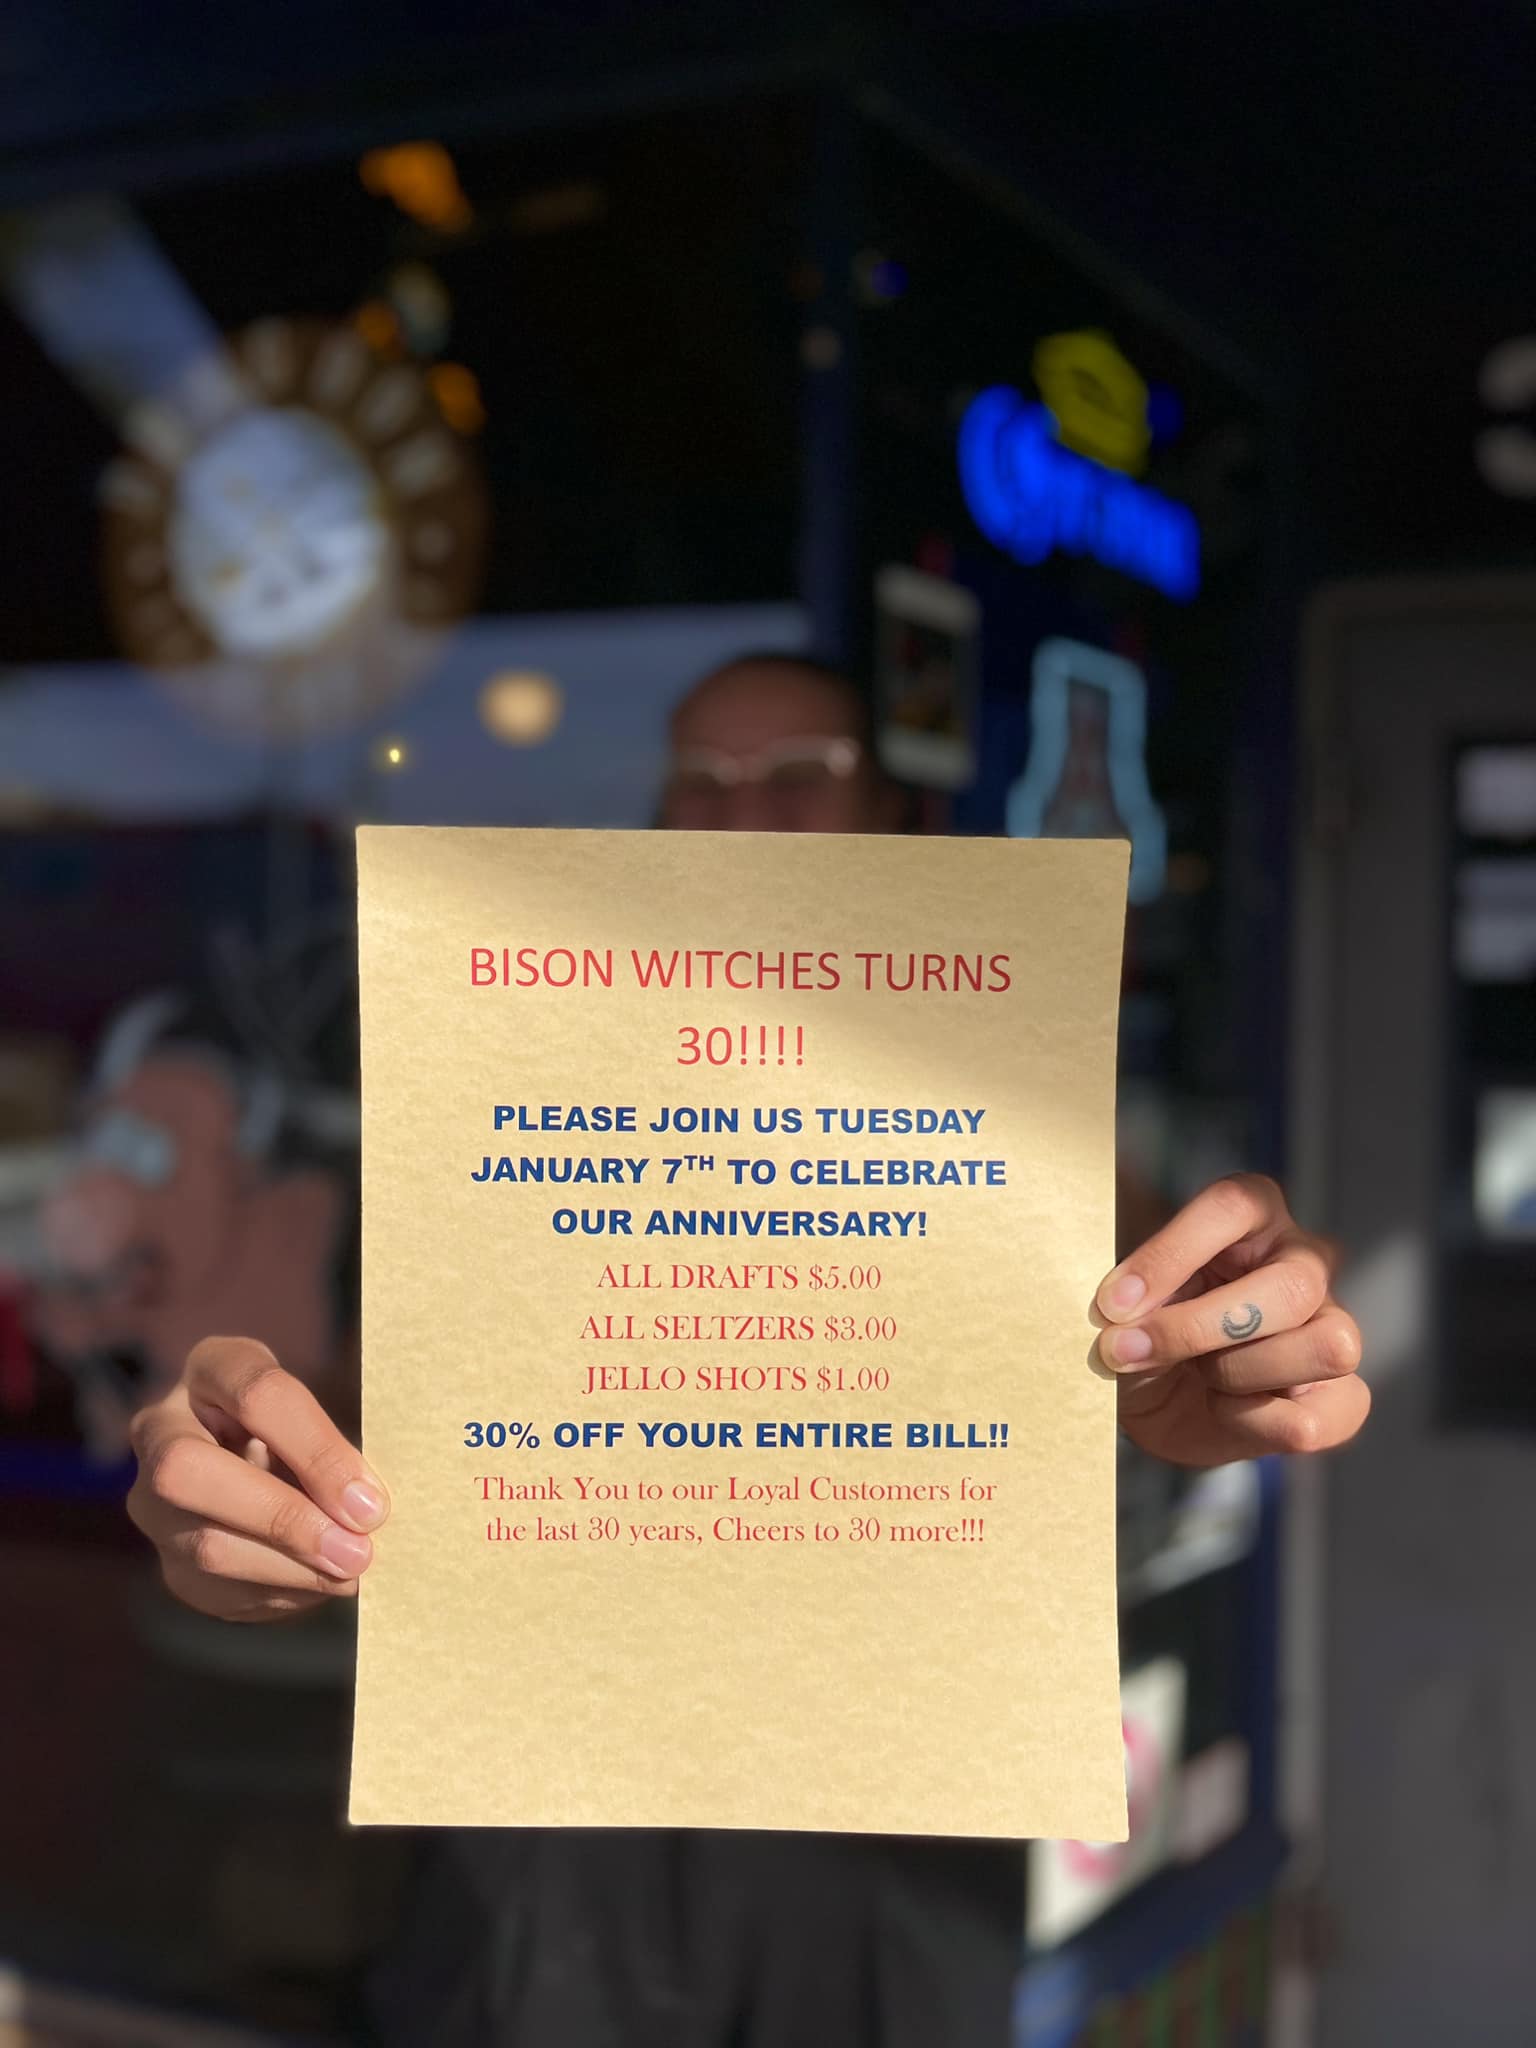 Corona
BISON WITCHES TURNS
30!!!!
PLEASE JOIN US TUESDAY
JANUARY 7TH TO CELEBRATE
OUR ANNIVERSARY!
ALL DRAFTS $5.00
ALL SELTZERS $3.00
JELLO SHOTS $1.00
30% OFF YOUR ENTIRE BILL!!
Thank You to our Loyal Customers for
the last 30 years, Cheers to 30 more!!!